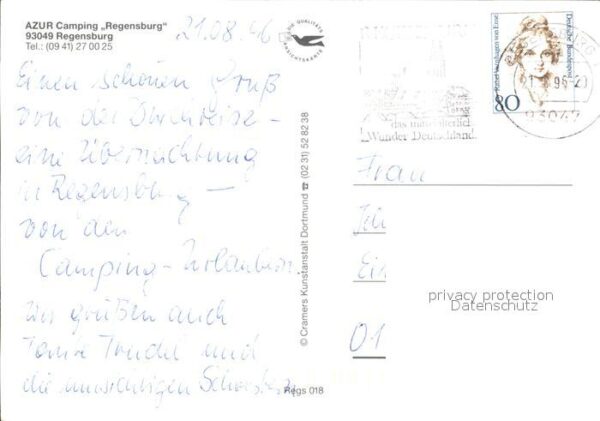 AZUR Camping „Regensburg"
93049 Regensburg
Tel.: (09 41) 27 00 25
21.08.96
Einen schönen Gruß
von der Durchreise –
eine Übernachtung
in Regensburg –
von den
Camping-Urlaubern.
Wir grüßen auch
Tante Trudel und
die
© Cramers Kunstanstalt Dortmund ☎ (02 31) 52 82 38
Regs 018
CRAMERS QUALITÄTS
ANSICHTSKARTE
das mittelalterliche
Wunder Deutschlands
Rahel Varnhagen von Ense
Deutsche Bundespost
80
93047
Frau
01
privacy protection
Datenschutz